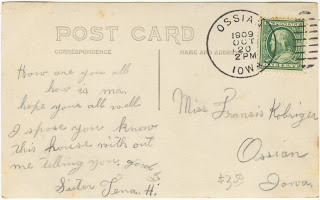 POST CARD
CORRESPONDENCE
NAME AND ADDRESS
OSSIAN
1909
OCT
20
2 PM
IOWA
U.S. POSTAGE
ONE CENT
How are you all
how is ma.
hope your all well
I spose you know
this house with out
me telling you. Good
Sister Tena. H.
Miss Fransis Kobriger
Ossian
Iowa.
$3.50